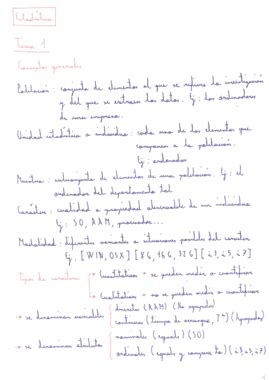 Estadística
Tema 1
Conceptos generales
Población: conjunto de elementos al que se refiere la investigación
y del que se extraen los datos. Ej: los ordenadores
de una empresa.
Unidad estadística o individuo: cada uno de los elementos que
componen a la población.
Ej: ordenador
Muestra: subconjunto de elementos de una población. Ej: el
ordenador del departamento tal
Carácter: cualidad o propiedad observable de un individuo
Ej: SO, RAM, procesador...
Modalidad: diferentes variantes o situaciones posibles del carácter
Ej. [WIN, OSX] [8G, 16G, 32G] [i3, i5, i7]
Tipos de caracteres → Cuantitativos → se pueden medir o cuantificar
→ Cualitativos → no se pueden medir o cuantificar
→ se denominan variables discreta (RAM) (No agrupados)
continuas (tiempo de arranque, Tª) (Agrupados)
→ se denominan atributos nominales (equals) (SO)
ordinales (equals y compare to) (i3, i5, i7)